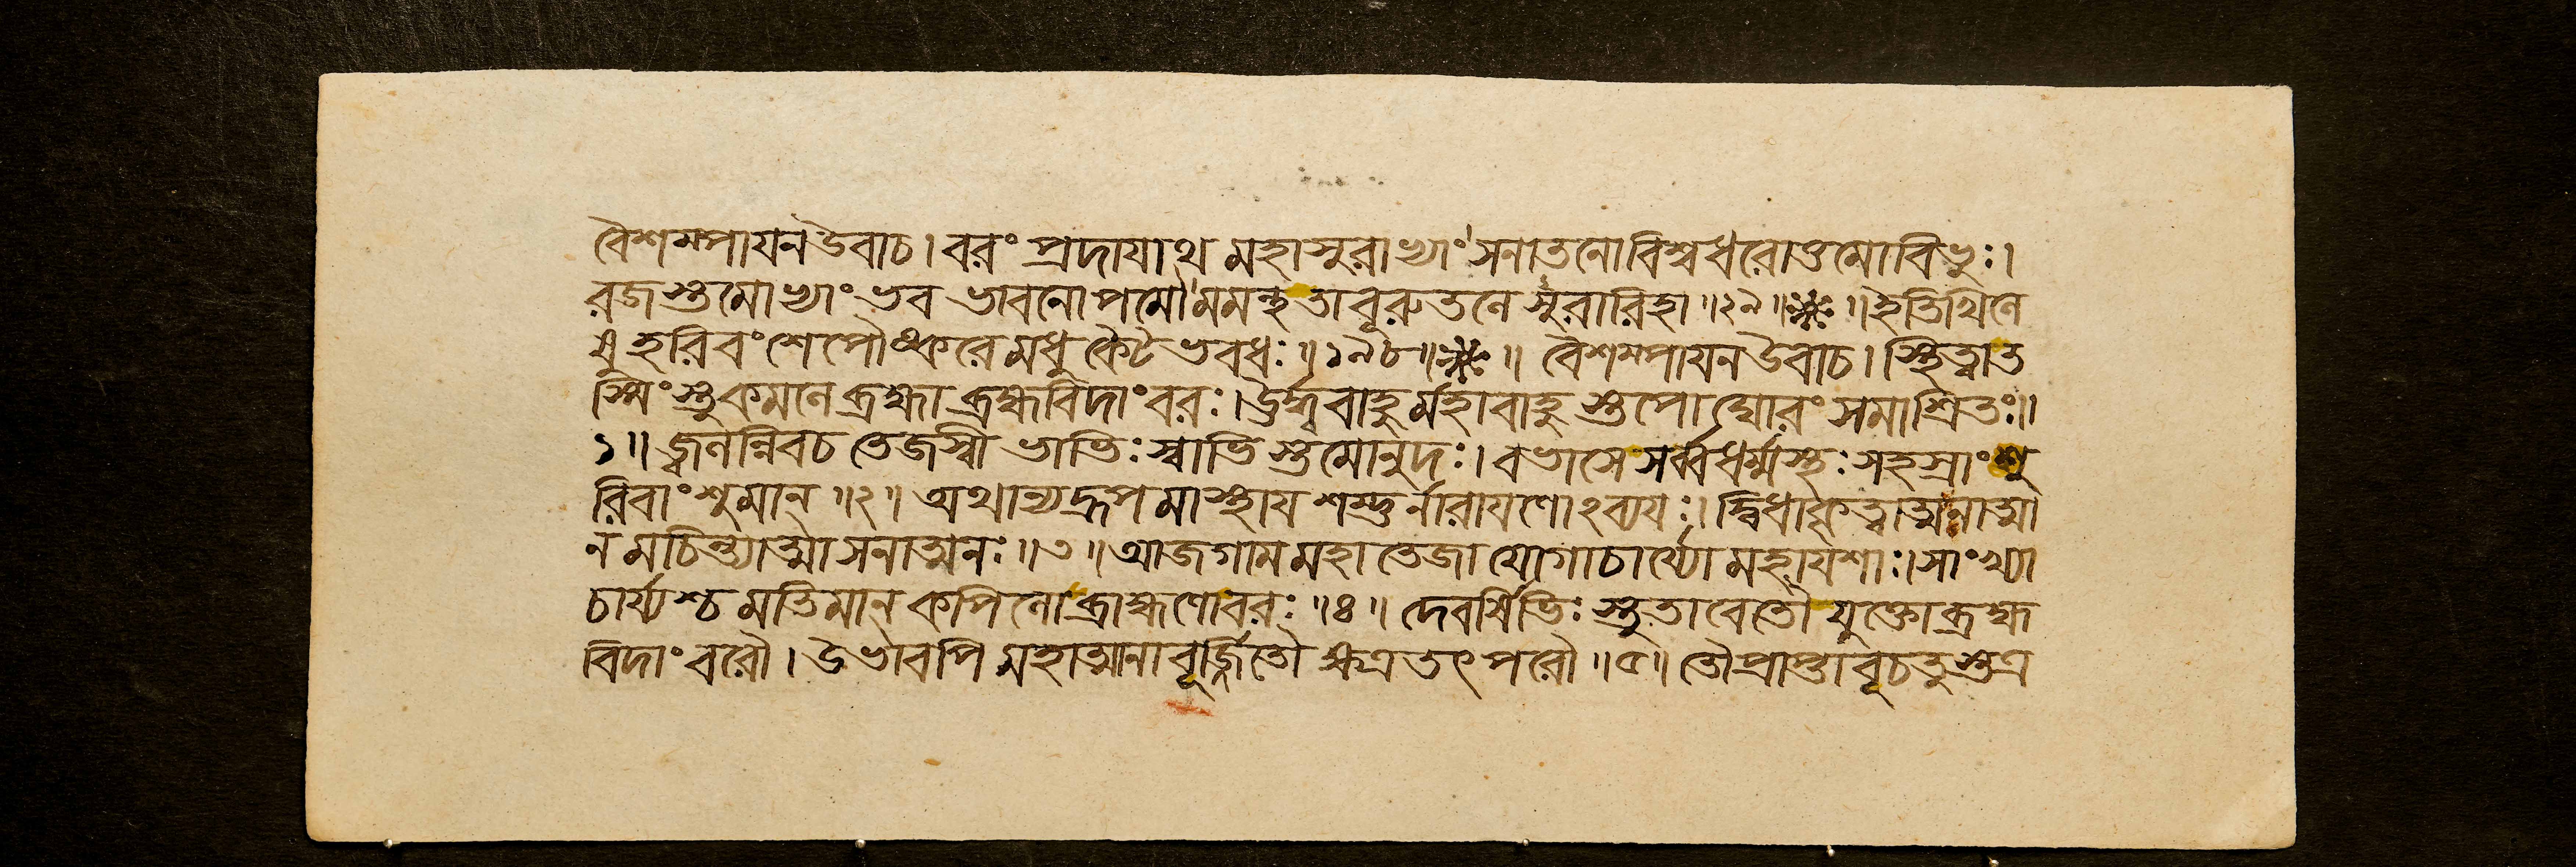 বৈশম্পায়ন উবাচ। বরং প্রদায়াথ মহাসুরাখ্যাং সনাতনো বিশ্বধরোত্তমো বিভুঃ।
রজস্তমোখ্যাং ভব ভাবনোপমৌ মমন্থ তাবূরুতলে সুরারিহা ॥২৯॥ ॥ ইতি খিলে
ষু হরিবংশে পৌষ্করে মধুকৈটভবধঃ ॥১৯৮॥ ॥ বৈশম্পায়ন উবাচ। স্থিত্বা ত
স্মিংস্তু কমলে ব্রহ্মা ব্রহ্মবিদাং বরঃ। ঊর্দ্ধ্ববাহুর্মহাবাহুস্তপো ঘোরং সমাশ্রিতঃ॥
১॥ জ্বলন্নিব চ তেজস্বী ভাভিঃ স্বাভিস্তমোনুদঃ। বভাসে সর্ব্বধর্ম্মস্থঃ সহস্রাংশু
রিবাংশুমান্ ॥২॥ অথান্যদ্রূপমাস্থায় শম্ভুর্নারায়ণোঽব্যয়ঃ। দ্বিধা কৃত্বাত্মনাত্মা
নমচিন্ত্যাত্মা সনাতনঃ ॥৩॥ আজগাম মহাতেজা যোগাচার্য্যো মহাযশাঃ। সাংখ্যা
চার্য্যশ্চ মতিমান্ কপিলো ব্রাহ্মণো বরঃ ॥৪॥ দেবর্ষিভিঃ স্তুতাবেতৌ যুক্তো ব্রহ্ম
বিদাং বরৌ। উভাবপি মহাত্মানাবূর্জ্জিতৌ ক্ষেত্রতৎপরৌ ॥৫॥ তৌ প্রাপ্তাবূচতুস্তত্র